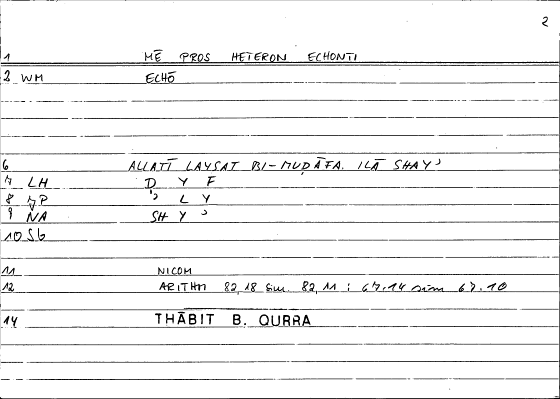 2
1 MĒ PROS HETERON ECHONTI
2 WM ECHŌ
6 ALLATĪ LAYSAT BI-MUḌĀFA. ILĀ SHAYʾ
7 LH Ḍ Y F
8 P ʾ L Y
9 NA SH Y ʾ
10 SG
11 NICOM
12 ARITHM 82,18 sim. 82,11 : 67.14 sim 67.10
14 THĀBIT B. QURRA